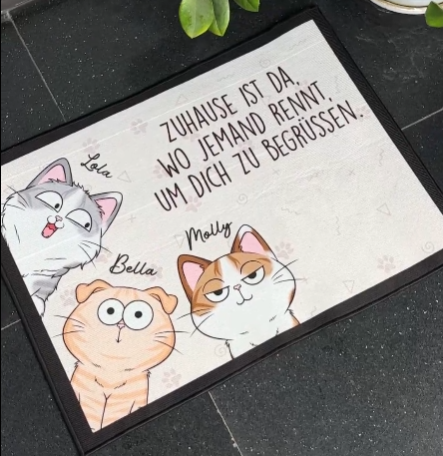 ZUHAUSE IST DA,
WO JEMAND RENNT,
UM DICH ZU BEGRÜSSEN.
Lola
Molly
Bella